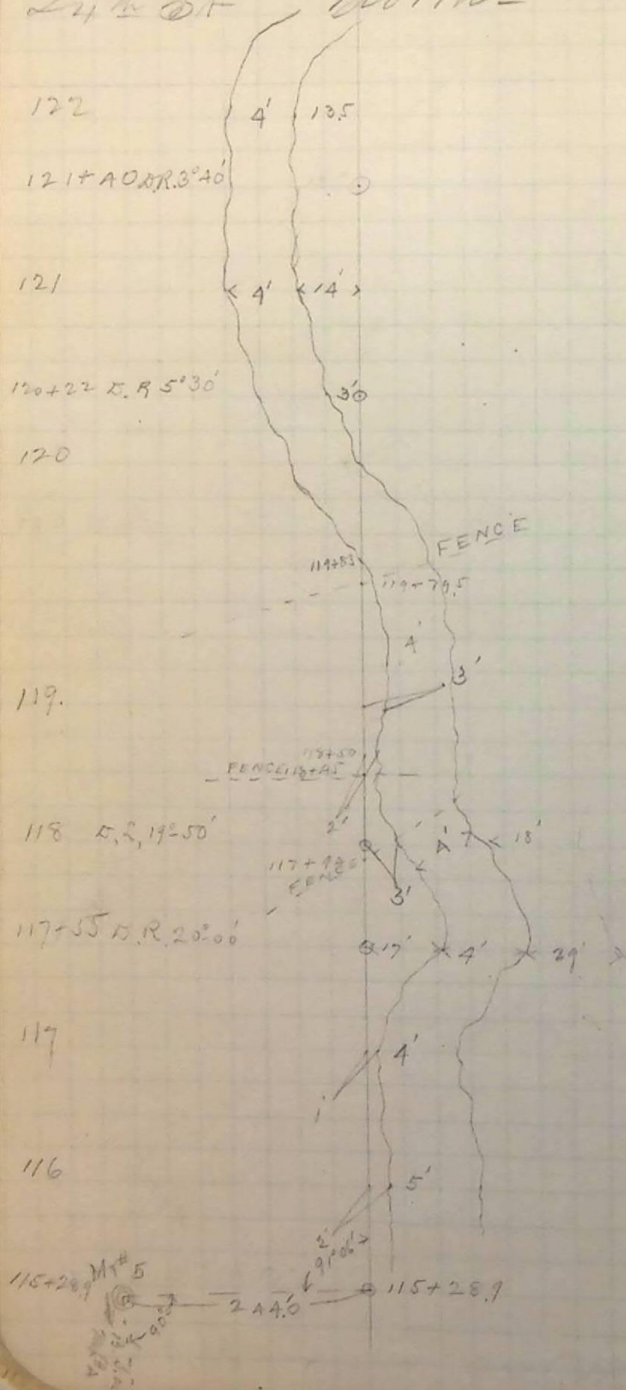 122 4' 13.5
121+40 D.R. 3°40'
121 4' 14'
120+22 D.R 5°30' 3'
120
FENCE
119+83
119+79.5
4'
119. 3'
118+50
FENCE 118+45
2'
118 D.L, 19°50' 4' 18'
FENCE
3'
117+55 D.R. 20°00' 17' 4' 29'
117 4'
1'
116 5'
2'
91°06'
115+28.9 MT# 5 244.0 115+28.9